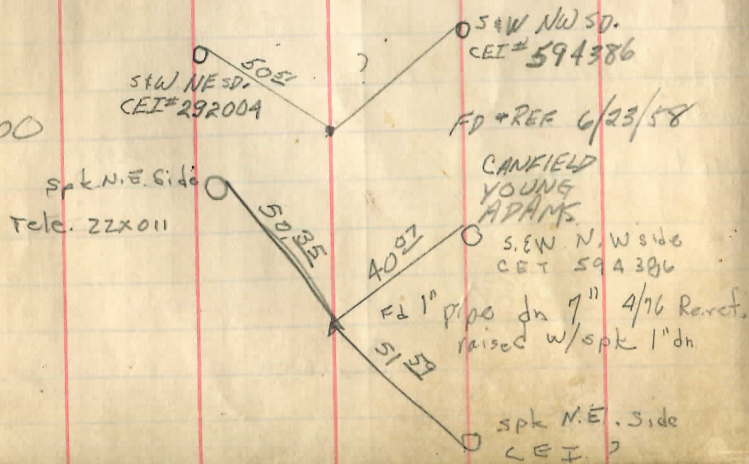 S&W NW SD.
CEI# 594386
50 51
?
S&W NE SD.
CEI# 292004
00
FD & REF 6/23/58
CANFIELD
YOUNG
ADAMS
spk. N.E. Side
Tele. 22X011
50.35
40 07
S.&W N.W side
CEI 594386
Fd 1" pipe dn 7" 4/76 Re.ref.
raised w/spk 1" dn
51 59
spk N.E. Side
CEI ?